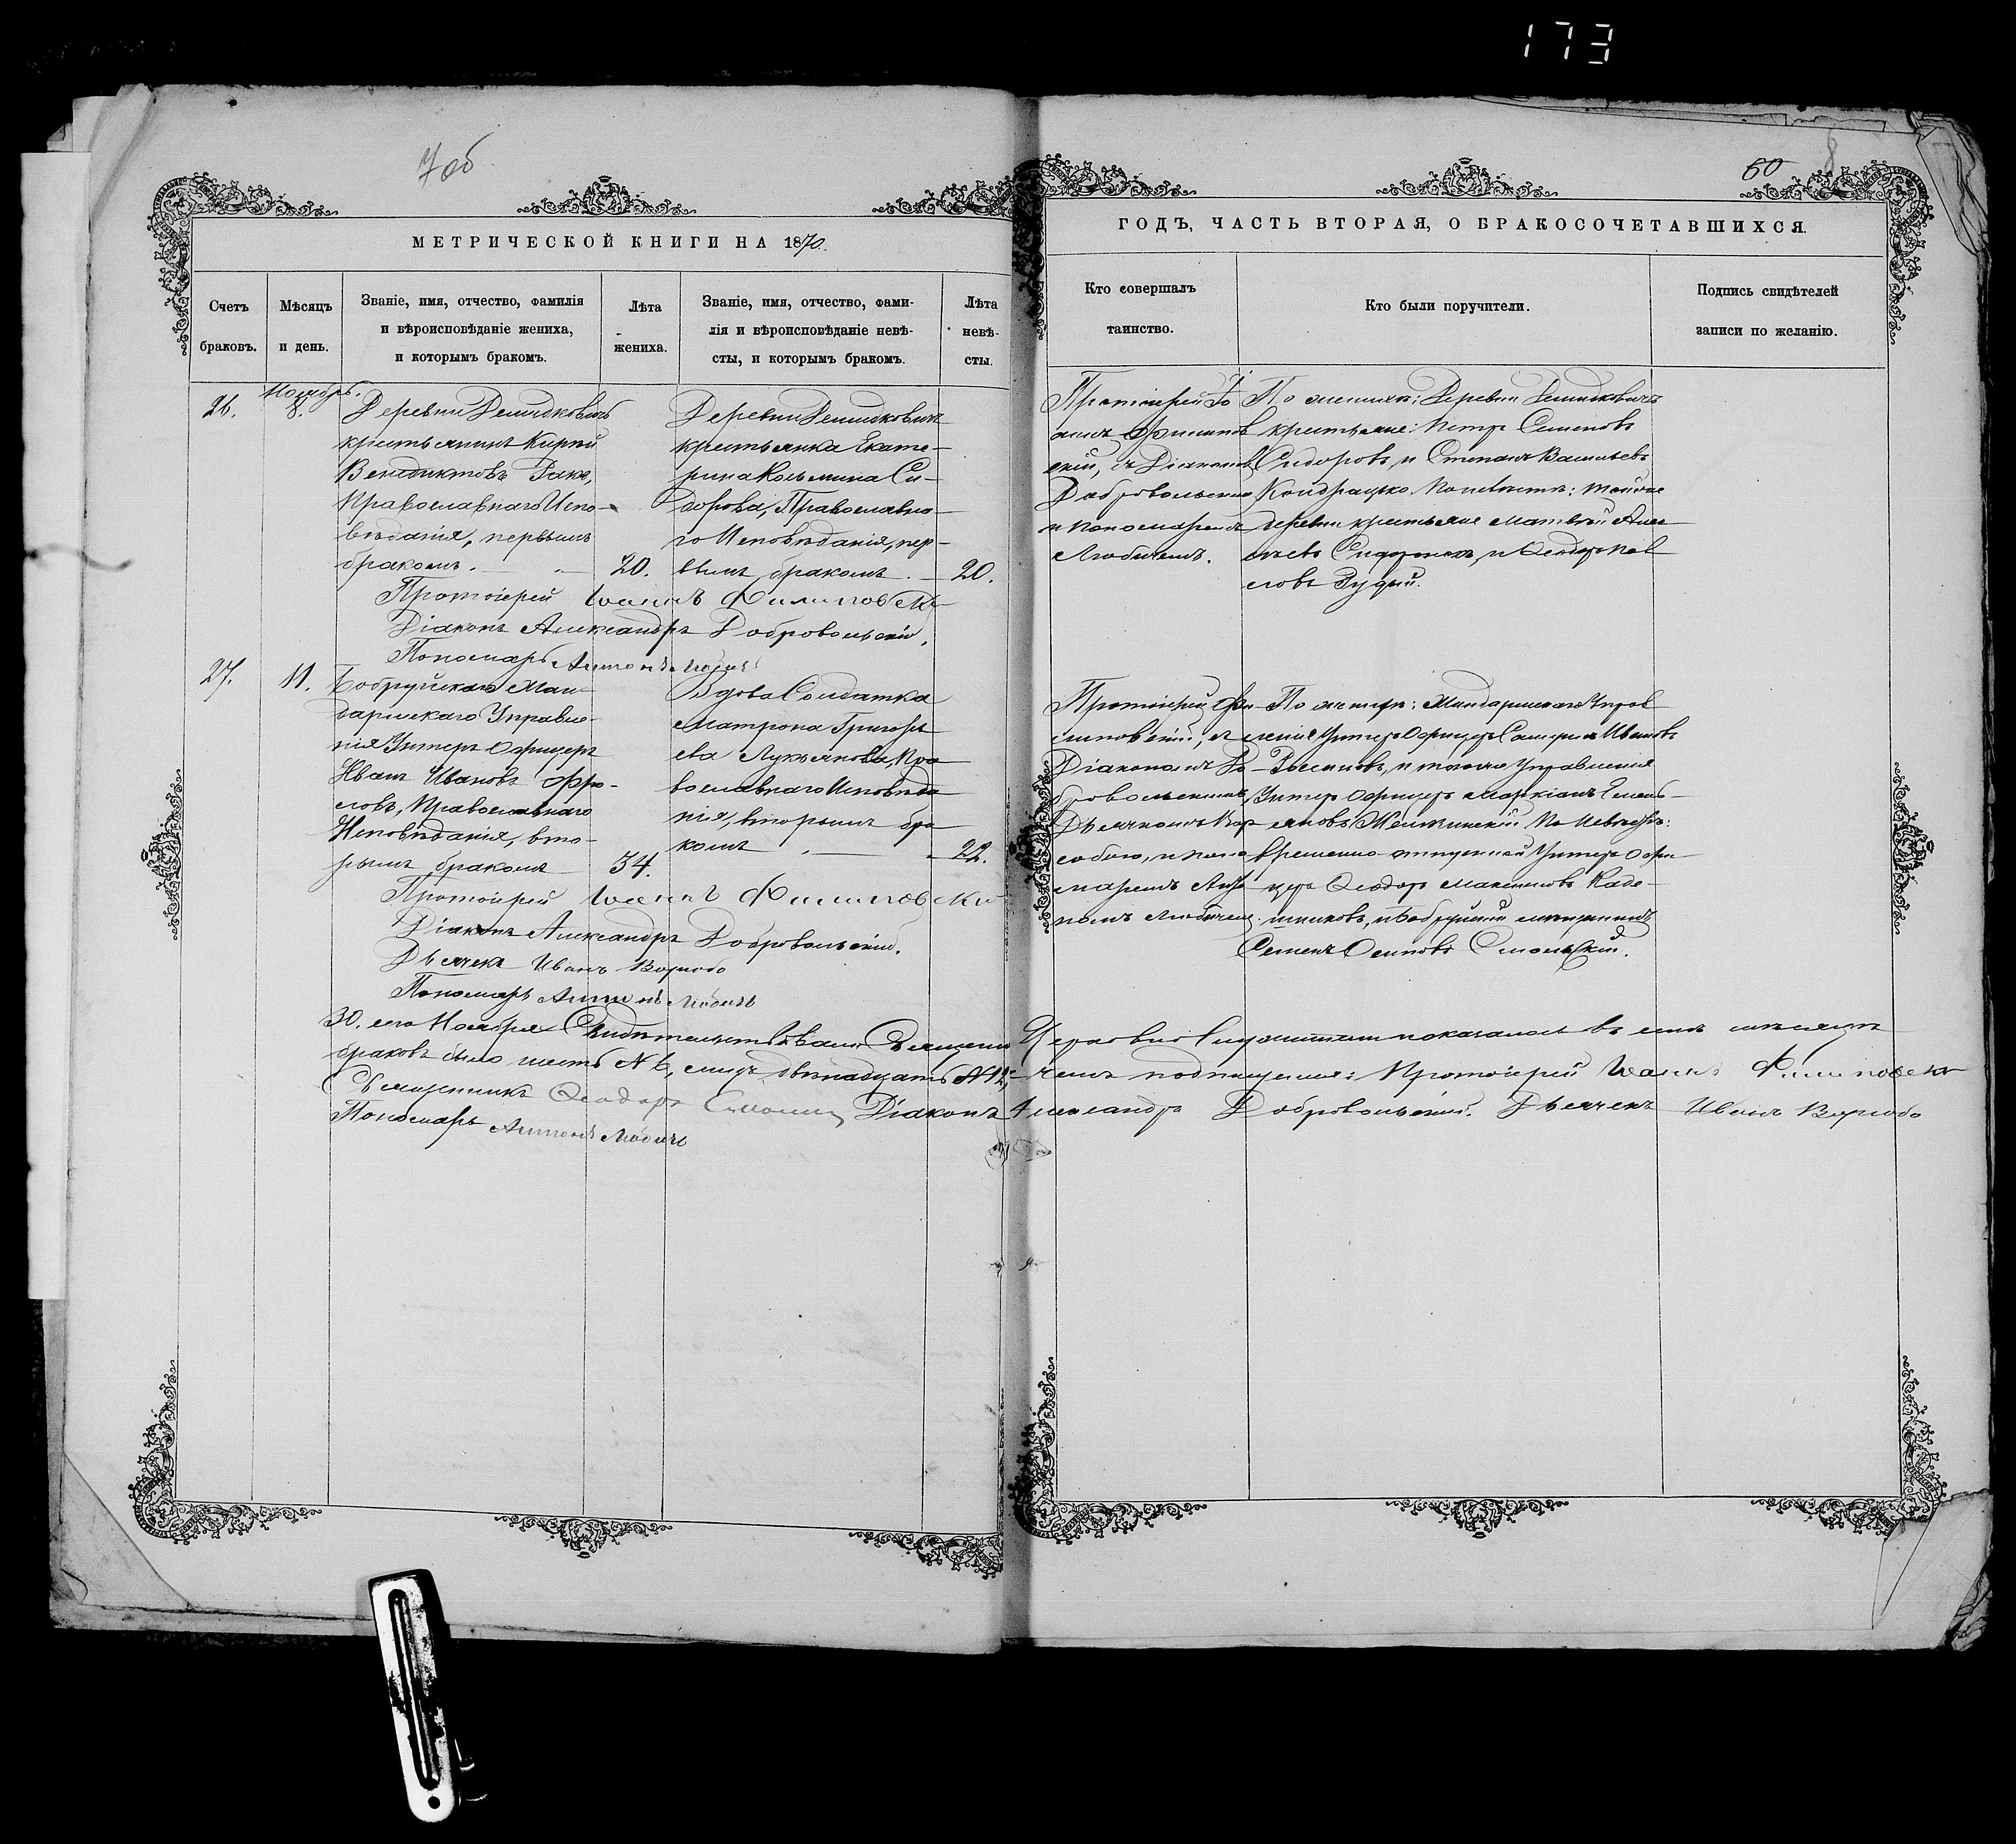 173
7 об
60
8
МЕТРИЧЕСКОЙ КНИГИ НА 1870.
ГОДЪ, ЧАСТЬ ВТОРАЯ, О БРАКОСОЧЕТАВШИХСЯ.
Счетъ
браковъ.
Мѣсяцъ
и день.
Званіе, имя, отчество, фамилія
и вѣроисповѣданіе жениха,
и которымъ бракомъ.
Лѣта
жениха.
Званіе, имя, отчество, фами-
лія и вѣроисповѣданіе невѣ-
сты, и которымъ бракомъ.
Лѣта
невѣ-
сты.
Кто совершалъ
таинство.
Кто были поручители.
Подпись свидѣтелей
записи по желанію.
26.
Ноябрь.
8.
Деревни Демидковичъ
крестьянинъ
Венедиктовъ
Православнаго Испо-
вѣданія, первымъ
бракомъ.
20.
Деревни Демидковичъ
крестьянка Екате-
рина Козьмина Си-
дорова, Православна-
го Исповѣданія, пер-
вымъ бракомъ.
20.
Протоіерей Іо
аннъ Филипов
скій, съ Діакономъ
Добровольскимъ
и пономаремъ
Любичемъ.
По женихѣ: Деревни Демидковичъ
крестьяне: Петръ Семеновъ
Сидоровъ, и Степанъ Васильевъ
Кондрацко. По невѣстѣ: той же
деревни крестьяне Матвѣй
Сидоровъ, и Ѳеодоръ Пав
ловъ
Протоіерей Іоаннъ Филиповскій
Діаконъ Александръ Добровольскій.
Пономарь Антонъ Любичъ
27.
11.
Бобруйскаго Жан-
дармскаго Управле-
нія Унтеръ Офицеръ
Иванъ Ивановъ Фро-
ловъ, Православнаго
Исповѣданія, вто-
рымъ бракомъ
34.
Вдова Солдатка
Матрона Григорь
ева Лукьянова, Пра
вославнаго Исповѣда
нія, вторымъ бра
комъ
22.
Протоіерей Фи
липовскій, съ
Діакономъ До-
бровольскимъ,
Дьячкомъ
и поно
маремъ Анто
номъ Любичемъ.
По женихѣ: Жандармскаго Управ
ленія Унтеръ Офицеръ Ивановъ
и того же Управленія
Унтеръ Офицеръ Маркіанъ Емель-
яновъ По невѣстѣ:
временно отпускной Унтеръ Офи-
церъ Ѳеодоръ Максимовъ
и Бобруйскій мѣщанинъ
Семенъ Осиповъ
Протоіерей Іоаннъ Филиповскій
Діаконъ Александръ Добровольскій.
Дьячекъ Иванъ
Пономарь Антонъ Любичъ
30. его Ноября Свидѣтельствовали Священно Церковно Служители показаномъ въ семъ мѣсяцѣ
браковъ было шесть № 6, лицъ двѣнадцать № 12, въ чемъ подпишемся: Протоіерей Іоаннъ Филиповскій
Священникъ Ѳеодоръ Діаконъ Александръ Добровольскій. Дьячекъ Иванъ
Пономарь Антонъ Любичъ